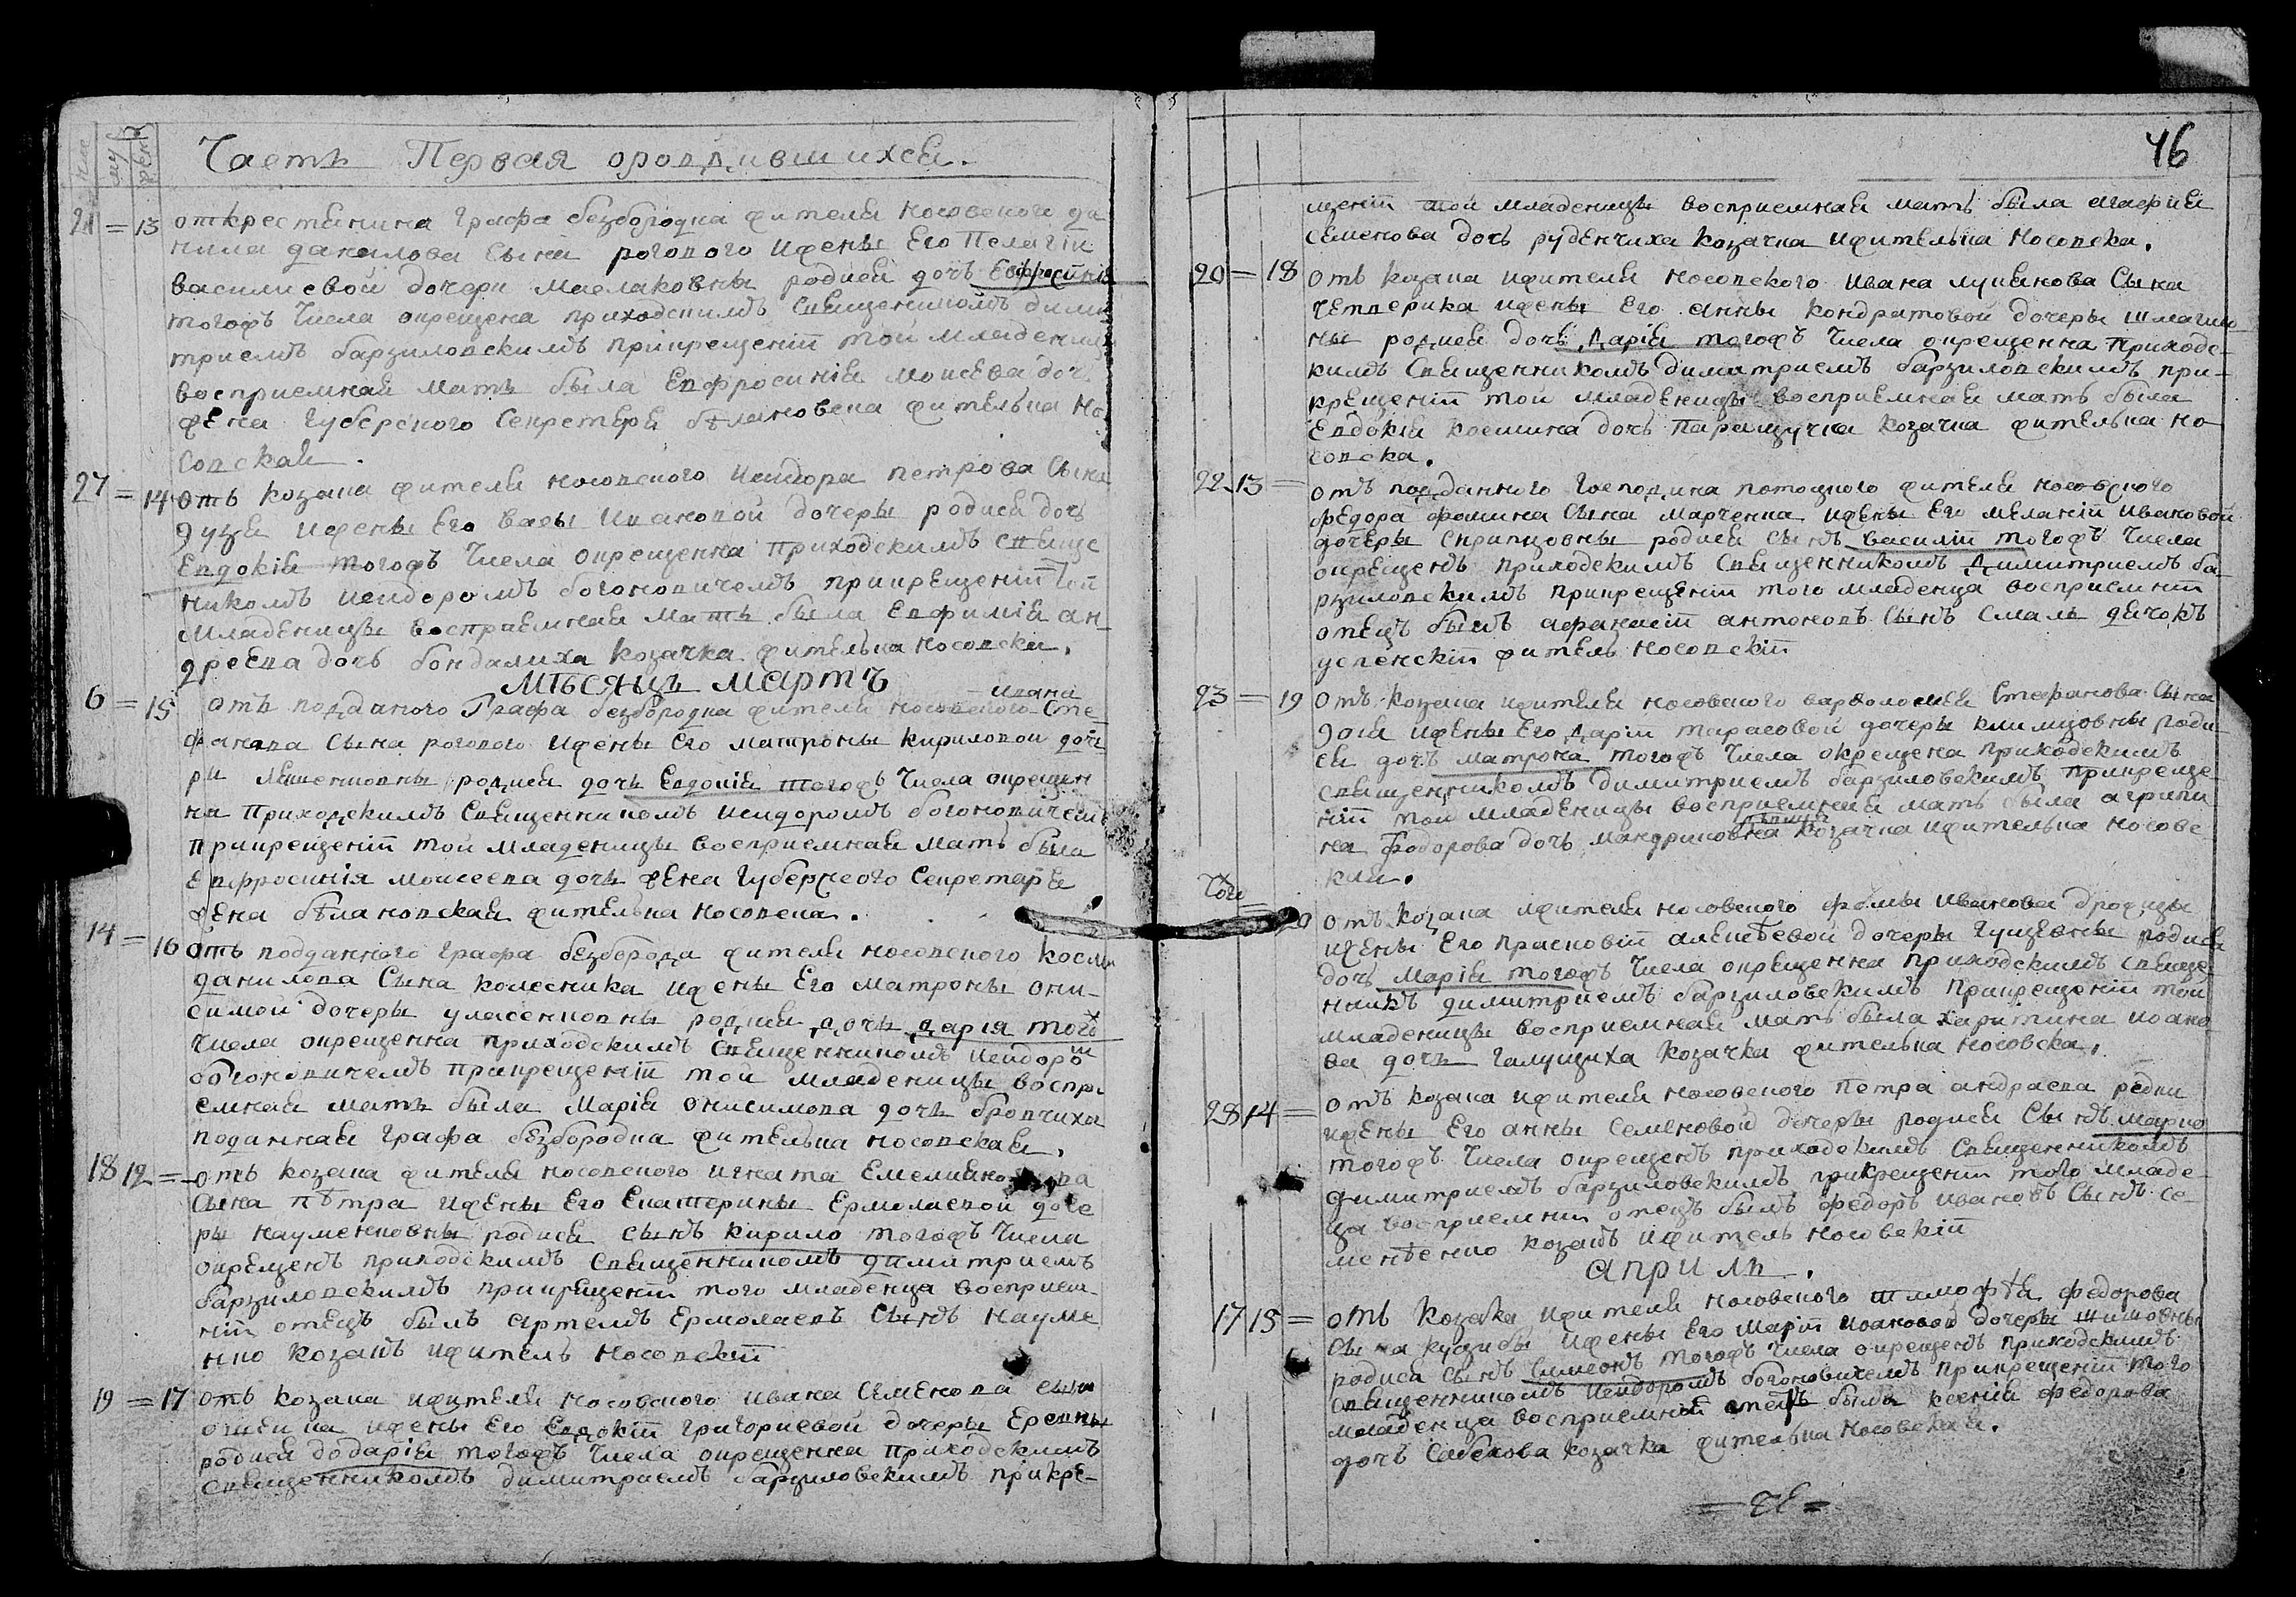 Часть Первая ородившихся.
21 = 13 открестянина графа безбородка жителя носовского да
нила данилова сына рогового ижены Его Пелагіи
василиевой дочери маслаковны родися дочь Евфросинія
тогожъ числа окрещена приходскимъ священикомъ дими
триемъ барзиловскимъ прикрещеніи той младеницы
восприемная мать была Евфросинія моисеева доч
жена губерского секретеря бѣлановска жителька но
совская.
27 = 14 отъ козака жителя носовского исидора петрова сына
ижены Его васы ивановой дочеры родися дочь
Евдокія тогожъ числа окрещенна приходскимъ свяще
никомъ исидоромъ богоновичемъ прикрещеніи той
младеницы восприемная мать была Евфимія ан
дреева дочь бондалиха козачка жителька носовска.
мѣсяцъ мартъ
6 = 15 отъ подданого графа безбородка жителя носовского ивана Сте
фанова сына рогового ижены Его матроны кириловой доче
ри родися дочь Евдокія тогожъ числа окрещен
на приходскимъ священникомъ исидоромъ богоновичемъ
прикрещеніи той младеницы восприемная мать была
Евфросинія моисеева дочь жена губерского секретаря
жена бѣлановская жителька носовска.
14 = 16 отъ подданного графа безборода жителя носовского космы
данилова сына колесника ижены Его матроны они
симой дочеры уласенковны родися дочь дарія того
числа окрещенна приходскимъ священникомъ исидоромъ
богоновичемъ прикрещеніи той младеницы воспри
емная мать была Марія онисимова дочь бровчиха
поданная графа безбородка жителька носовская.
18 12 = отъ козака жителя носовского игната Емелияно
сына пѣтра ижены Его Екатерины Ермолаевой доче
ры науменковны родися сынъ кирило тогожъ числа
окрещенъ приходскимъ священникомъ димитриемъ
барзиловскимъ прикрещеніи того младенца восприем
ній отецъ былъ артемъ Ермолаевъ сынъ науме
нко козакъ ижитель носовскій
19 = 17 отъ козака ижителя носовского ивана семенова сына
ижены Его Евдокіи григориевой дочеры
родися до дарія тогожъ числа окрещенна приходскимъ
священникомъ димитриемъ барзиловскимъ прикре-
46
щеніи той младеницы восприемная мать была агафия
семенова дочь руденчиха козачка ижителька носовска.
20 = 18 отъ козака ижителя носовского ивана лукянова сына
четверика ижены Его анны кондратовой дочеры
родися дочь дарія тогожъ числа окрещенна приходс-
кимъ священникомъ димитриемъ барзиловскимъ при-
крещеніи той младеницы восприемная мать была
Евдокія космина дочь козачка жителька но
совска.
22 13 = отъ подданного господина потоцкого жителя носовского
Федора фомина сына марченка ижены Его меланіи ивановой
дочеры скрипцовны родися сынъ василій тогожъ числа
окрещенъ приходскимъ священникомъ димитриемъ ба
рзиловскимъ прикрещеніи того младенца восприемній
отецъ былъ афанасій антоновъ сынъ дячокъ
успенскій житель носовскій
23 = 19 отъ козака ижителя носовского варфоломея Стефанова сына
ижены Его даріи тарасовой дочеры климцовны роди
ся дочь матрона тогожъ числа окрещена приходскимъ
священникомъ димитриемъ барзиловскимъ прикреще
ніи той младеницы восприемная мать была агрипи
на Фодорова дочь мандриковна козачка ижителька носовс
кая.
Того 20 отъ козака ижителя носовского фомы иванова
ижены Его прасковіи алексѣевой дочеры гущевны родися
дочь Марія тогожъ числа окрещенна приходскимъ священ
никъ димитриемъ барзиловскимъ прикрещеніи той
младеницы восприемная мать была харитина иоано
ва дочь галущиха козачка жителька носовска.
28 14 = отъ козака ижителя носовского Петра андраева редки
ижены Его анны семеновой дочеры родися сынъ марко
тогожъ числа окрещенъ приходскимъ священникомъ
димитриемъ барзиловскимъ прикрещеніи того младе
ца восприемни отецъ былъ федоръ ивановъ сынъ се
козакъ ижитель носовскій
априль.
17 15 = отъ козака ижителя носовского тимофѣя федорова
сына куцибы ижены Его Маріи иоановой дочеры
родися сынъ симеонъ тогожъ числа окрещенъ приходскимъ
священникомъ исидоромъ богоновичемъ прикрещеніи того
младенца восприемній отецъ былъ ксенія федорова
дочь козачка жителька носовская.